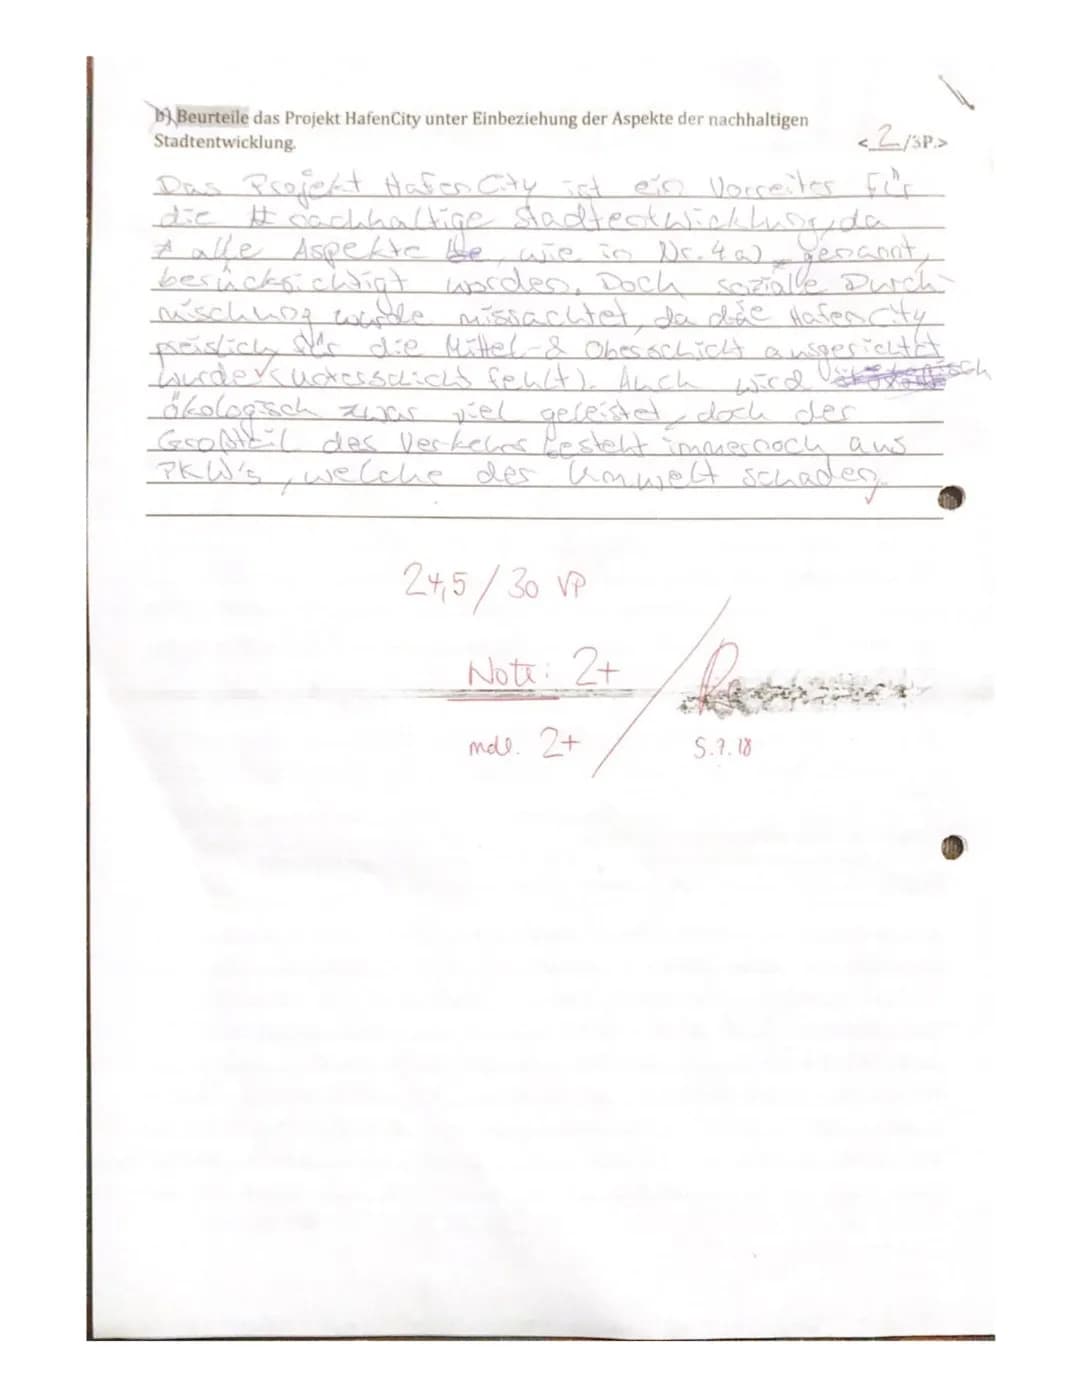 b) Beurteile das Projekt HafenCity unter Einbeziehung der Aspekte der nachhaltigen
Stadtentwicklung.
<2/3P.>
Das Projekt HafenCity ist ein Vorreiter für
die nachhaltige Stadtentwicklung, da
alle Aspekte, wie in Nr. 4a) genannt,
berücksichtigt worden. Doch sozialle Durch-
mischung wurde missachtet, da die HafenCity
preislich für die Mittel-& Oberschicht ausgerichtet
wurde (Unterschicht fehlt). Auch wird
ökologisch zwar viel geleistet, doch der
Großteil des Verkehrs besteht immernoch aus
PKW's, welche der Umwelt schaden.
24,5/30 VP
Note: 2+
mdl. 2+
5.7.18